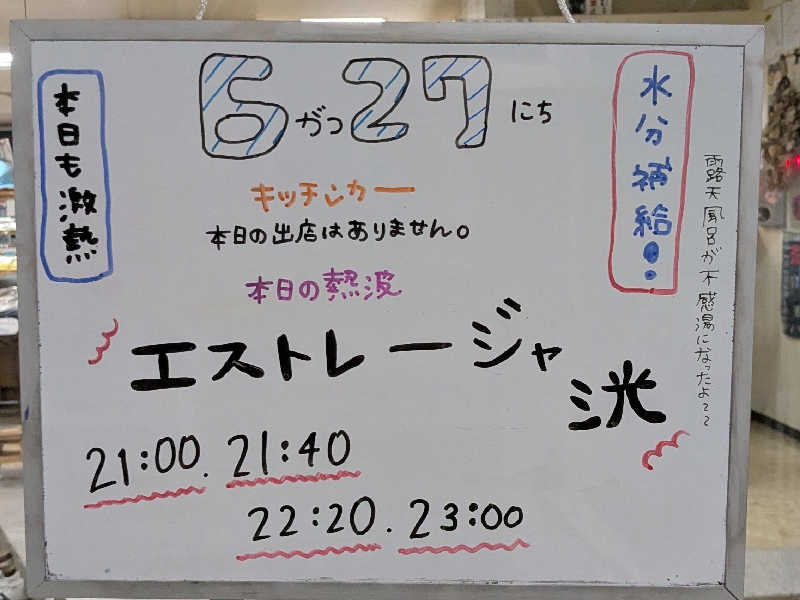 6がつ27にち
本日も激熱
水分補給!!
キッチンカー
本日の出店はありません。
本日の熱波
エストレージャ
洸
21:00. 21:40
22:20. 23:00
露天風呂が不感湯になったよ〜〜